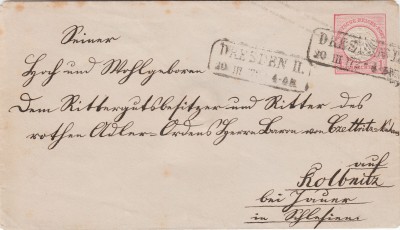 Seiner
DRESDEN II.
20 III
4-5N
DRESDEN II
20 III
Hoch und Wohlgeboren
Dem Rittergutsbesitzer und Ritter des
rothen Adler-Ordens Herrn Baron von Czettritz
auf
Kolbnitz
bei Jauer
in Schlesien